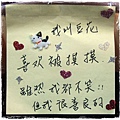 我叫豆花
喜欢被摸摸
雖然我都不笑!!
但我很善良的